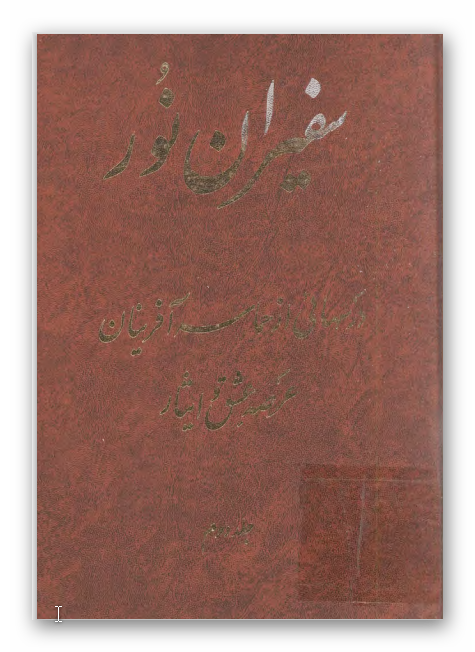 سفیران نور
از حماسه آفرینان
عرصه عشق و ایثار
جلد دوم